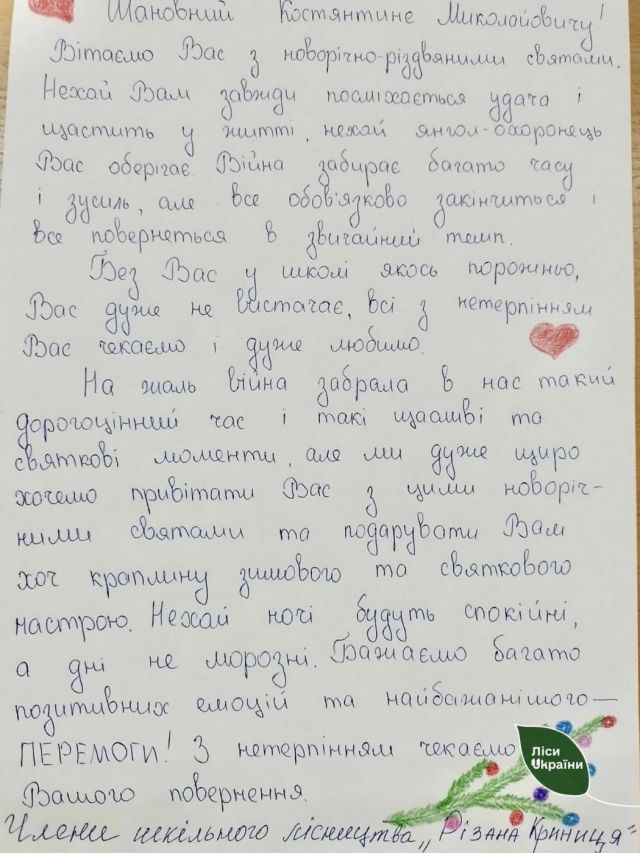 Шановний Костянтине Миколайовичу!
Вітаємо Вас з новорічно-різдвяними святами.
Нехай Вам завжди посміхається удача і
щастить у житті, нехай янгол-охоронець
Вас оберігає. Війна забирає багато часу
і зусиль, але все обов'язково закінчиться і
все повернеться в звичайний темп.
Без Вас у школі якось порожньо,
Вас дуже не вистачає, всі з нетерпінням
Вас чекаємо і дуже любимо.
На жаль війна забрала в нас такий
дорогоцінний час і такі щасливі та
святкові моменти, але ми дуже щиро
хочемо привітати Вас з цими новоріч-
ними святами та подарувати Вам
хоч краплину зимового та святкового
настрою. Нехай ночі будуть спокійні,
а дні не морозні. Бажаємо багато
позитивних емоцій та найбажанішого—
ПЕРЕМОГИ! З нетерпінням чекаємо
Вашого повернення.
Члени шкільного лісництва „Різана Криниця"
Ліси
України